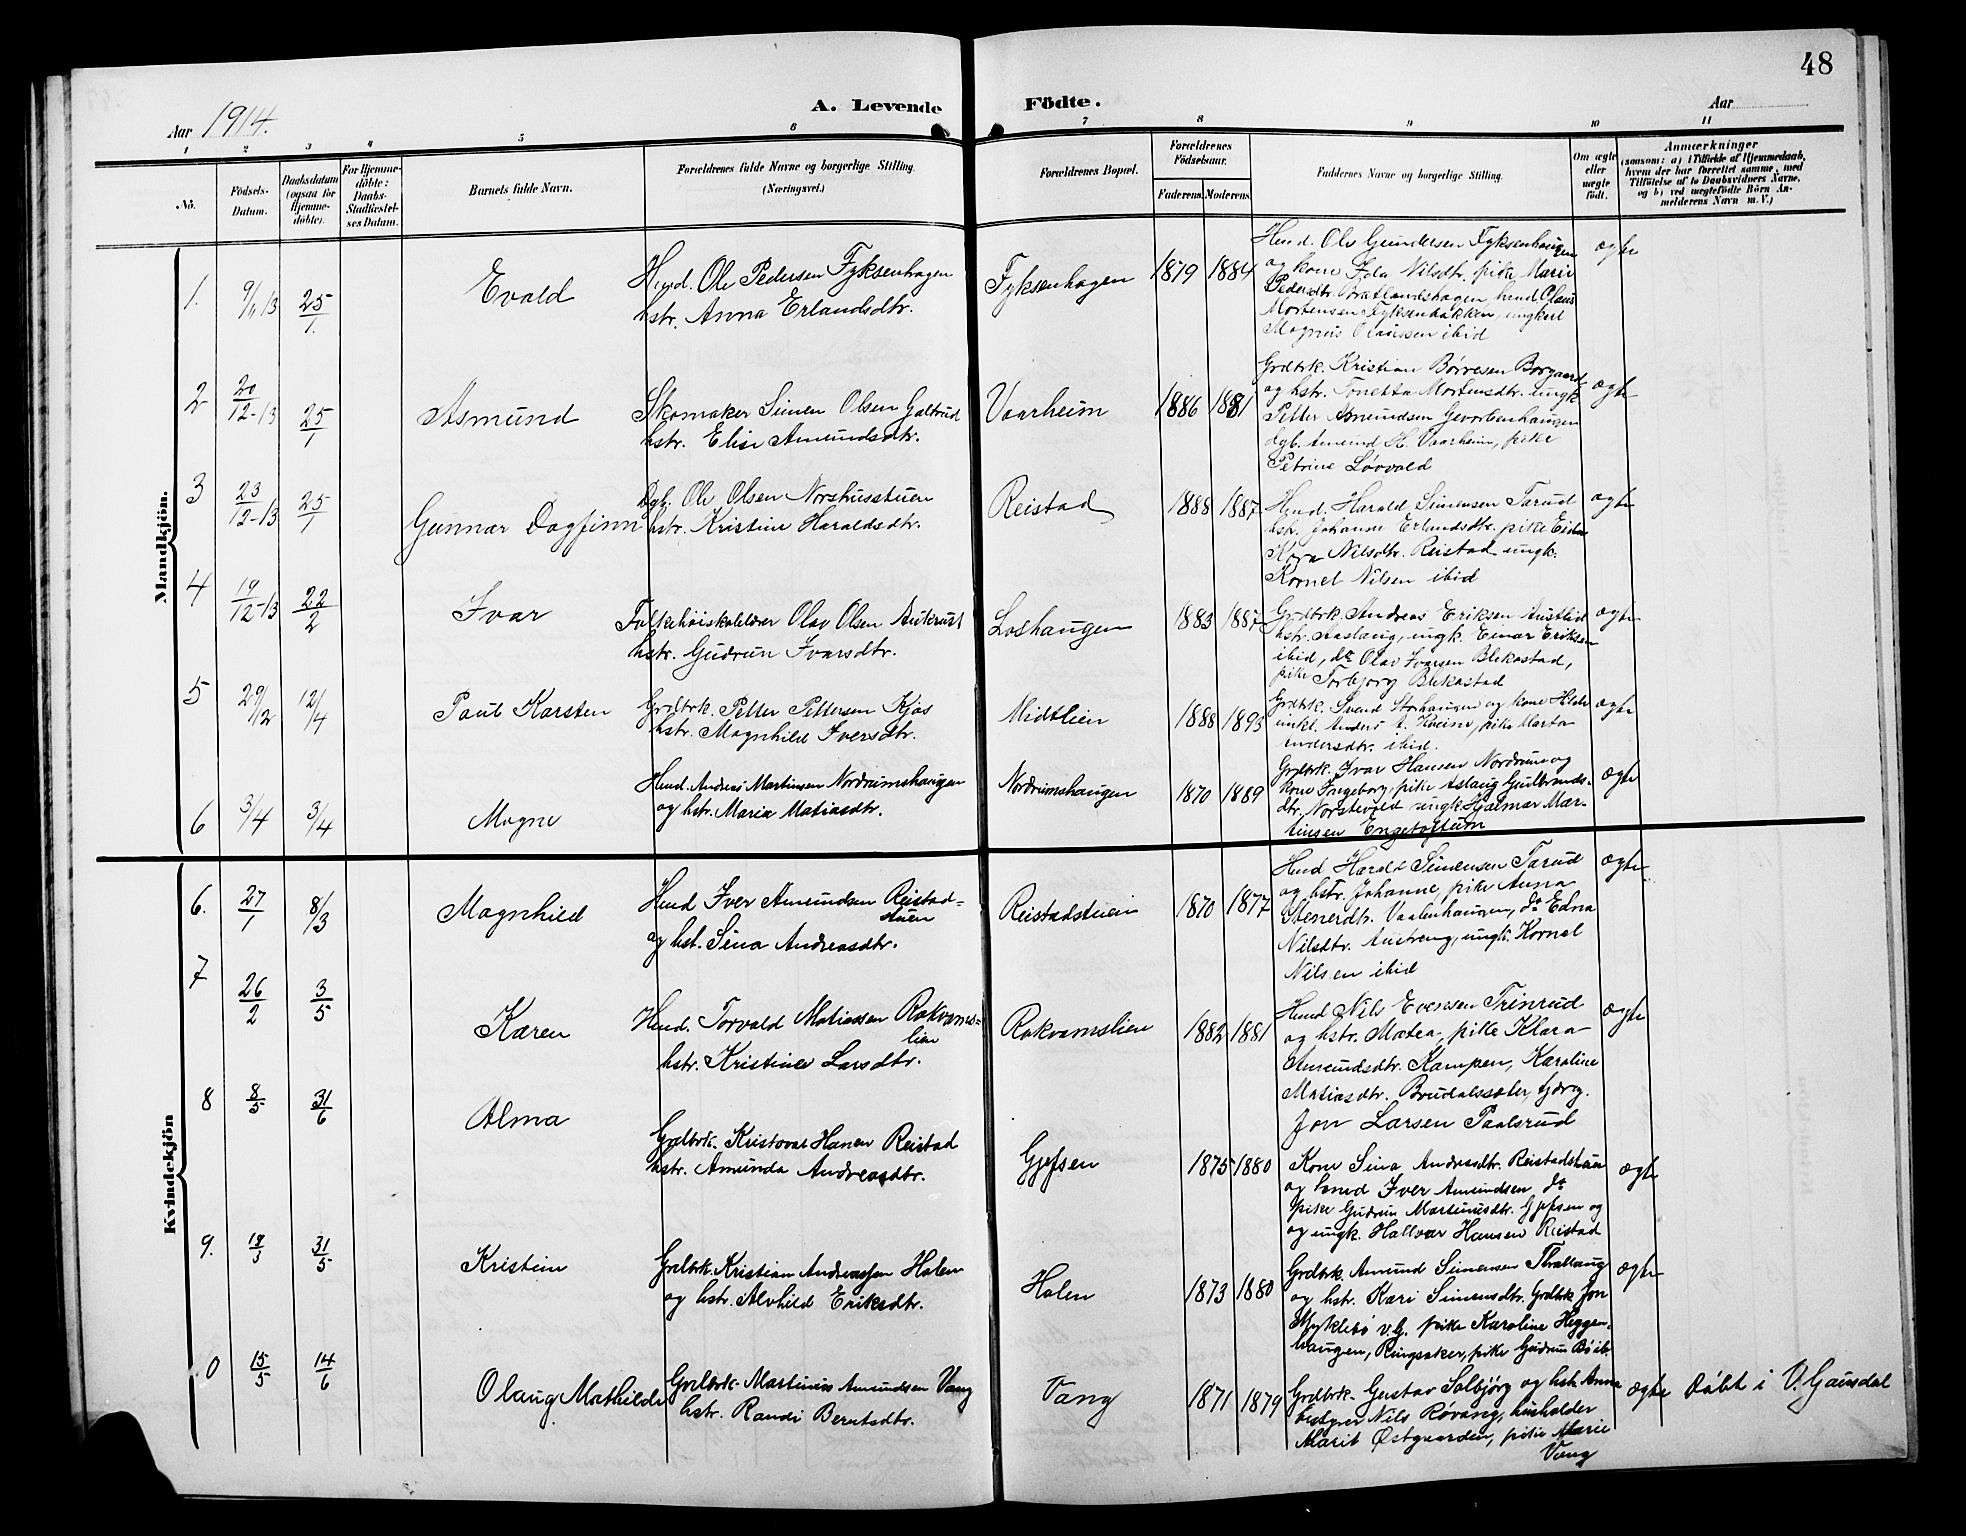 48
Aar 1914.
A. Levende Födte.
Aar
1 2 3 4 5 6 7 8 9 10 11
No.
Födsels-Datum.
Daabsdatum (ogsaa for Hjemmedöbte).
For Hjemmedöbte: Daabs-Stadfestelses Datum.
Barnets fulde Navn.
Forældrenes fulde Navne og borgerlige Stilling.
(Næringsvei.)
Forældrenes Bopæl.
Forældrenes Födselsaar.
Faderens. Moderens.
Faddernes Navne og borgerlige Stilling.
Om ægte eller uægte födt.
Anmærkninger
(saasom: a) i Tilfælde af Hjemmedaab, hvem der har forrettet samme, med Tilföielse af to Daabsvidners Navne, og b) ved uægtefödte Börn Anmelderens Navn m. V.)
Mandkjön.
1. 9/11 13 25/1 Evald
Husd. Ole Pedersen Fyksenhagen
hstr. Anna Erlandsdtr.
Fyksenhagen 1879 1884
Husd. Ole Gundersen Fyksenhaugen
og kone Ida Nilsdtr. pike Marie
Pedersdtr. Brætlandshagen, husd. Olaus
Mortensen Fyksenbakken, ungkarl
Magnus Olaussen ibid
ægte
2 20/12-13 25/1 Asmund
Skomaker Simen Olsen Galtrud
hstr. Elise Amundsdtr.
Vaarheim 1886 1881
Grdbrk. Kristian Børresen Borgaard
og hstr. Tonetta Mortensdtr. ungk
Petter Amundsen
dgb. Amund H. Vaarheim, pike
Petrine Løvvold
ægte
3 23/12-13 25/1 Gunnar Dagfinn
Dgb. Ole Olsen Norshusstuen
hstr. Kristine Haraldsdtr.
Reistad 1888 1887
Husd. Harald Simensen Tarud
hstr. Johanne Erlandsdtr. pike
Nilsdtr. Reistad ungk.
Kornel Nilsen ibid
ægte
4 19/12-13 22/2 Ivar
Folkehøiskolelærer Olav Olsen Aukrust
hstr. Gudrun Ivarsdtr.
Loshaugen 1883 1887
Grdbrk. Andreas Eriksen Austlid
hstr. Aaslaug, ungk. Einar Eriksen
ibid, do Olav Ivarsen Blekastad,
pike Torbjorg Blekastad
ægte
5 29/12 12/4 Paul Karsten
Grdbrk. Petter Pettersen Kjos
hstr. Magnhild Iversdtr.
Midtlien 1888 1893
Grdbrk. Svend Storhaugen og kone Hilda
unkl. Anders A. Kveine, pike Marta
Andersdtr. ibid.
ægte
6 3/4 3/4 Magne
Husd. Andreas Martinsen Nordrumshaugen
og hstr. Maria Matiasdtr.
Nordrumshaugen 1870 1889
Grdbrk. Ivar Hansen Nordrum og
kone Ingeborg, pike Aslaug Gulbrands-
dtr. Norstevold ungk. Hjalmar Mar-
tinsen Engetoftum
ægte
Kvindekjön
6. 27/1 8/3 Magnhild
Husd Iver Amundsen Reistad-
stuen
og hst. Sina Andreasdtr.
Reistadstuen 1870 1877
Husd Harald Simensen Tarud
og hstr. Johanne, pike Anna
Stenerdtr. Vaalenhaugen, do Edna
Nilsdtr. Austreng, ungk. Kornel
Nilsen ibid
ægte
7 26/2 3/5 Karen
Husd. Torvald Matiassen Rokvams-
lien
hstr. Kristine Larsdtr.
Rokvamslien 1882 1881
Husd Nils Evensen Trinrud
og hstr. Matea, pike Klara
Amundsdtr. Kampen, Karoline
Matiasdtr. Brudalssæter,
Jon Larsen Paalsrud
ægte
8 8/5 31/6 Alma
Grdbrk. Kristovar Hansen Reistad
hstr. Amunda Andreasdtr.
Gjefsen 1875 1880
Kone Sina Andreasdtr. Reistadstuen
og husd Iver Amundsen do
pike Gudrun Martinusdtr. Gjefsen og
og ungk. Hallvar Hansen Reistad
ægte
9. 18/3 31/5 Kristine
Grdbrk. Kristian Andreassen Holen
og hstr. Alvhild Eriksdtr.
Holen 1873 1880
Grdbrk. Amund Simensen Thrallaug
og hstr. Kari Simensdtr. Grdbrk Jon
Myklebö v.G. pike Karoline Heggen-
haugen, Ringsaker, pike Gudrun Bö ib.
ægte
0 15/5 14/6 Olaug Mathilde
Grdbrk. Martinius Amundsen Vang
hstr. Randi Berntsdtr.
Vang 1871 1879
Grdbrk. Gustav Solbjörg og hstr. Anna
bestyrer Nils Røvang, husholder
Marit Østgaarden, pike Marie
Vang
ægte
Døbt i V. Gausdal